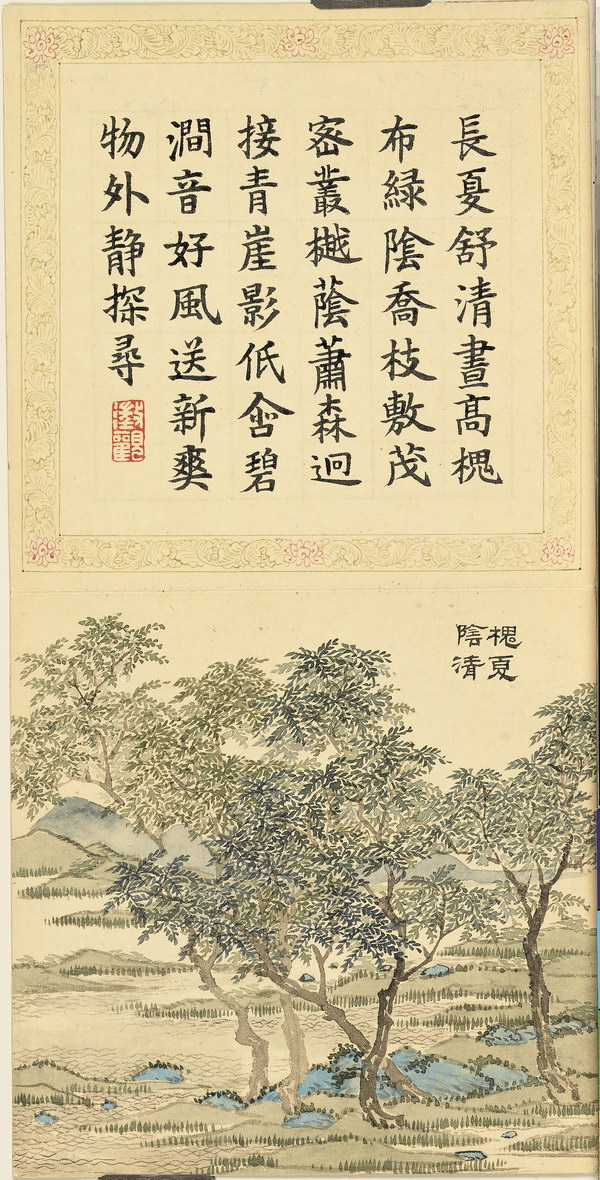 長夏舒清晝髙槐
布緑陰喬枝敷茂
宻叢樾蔭蕭森迥
接青崖影低含碧
澗音好風送新爽
物外静探尋
槐夏
陰清